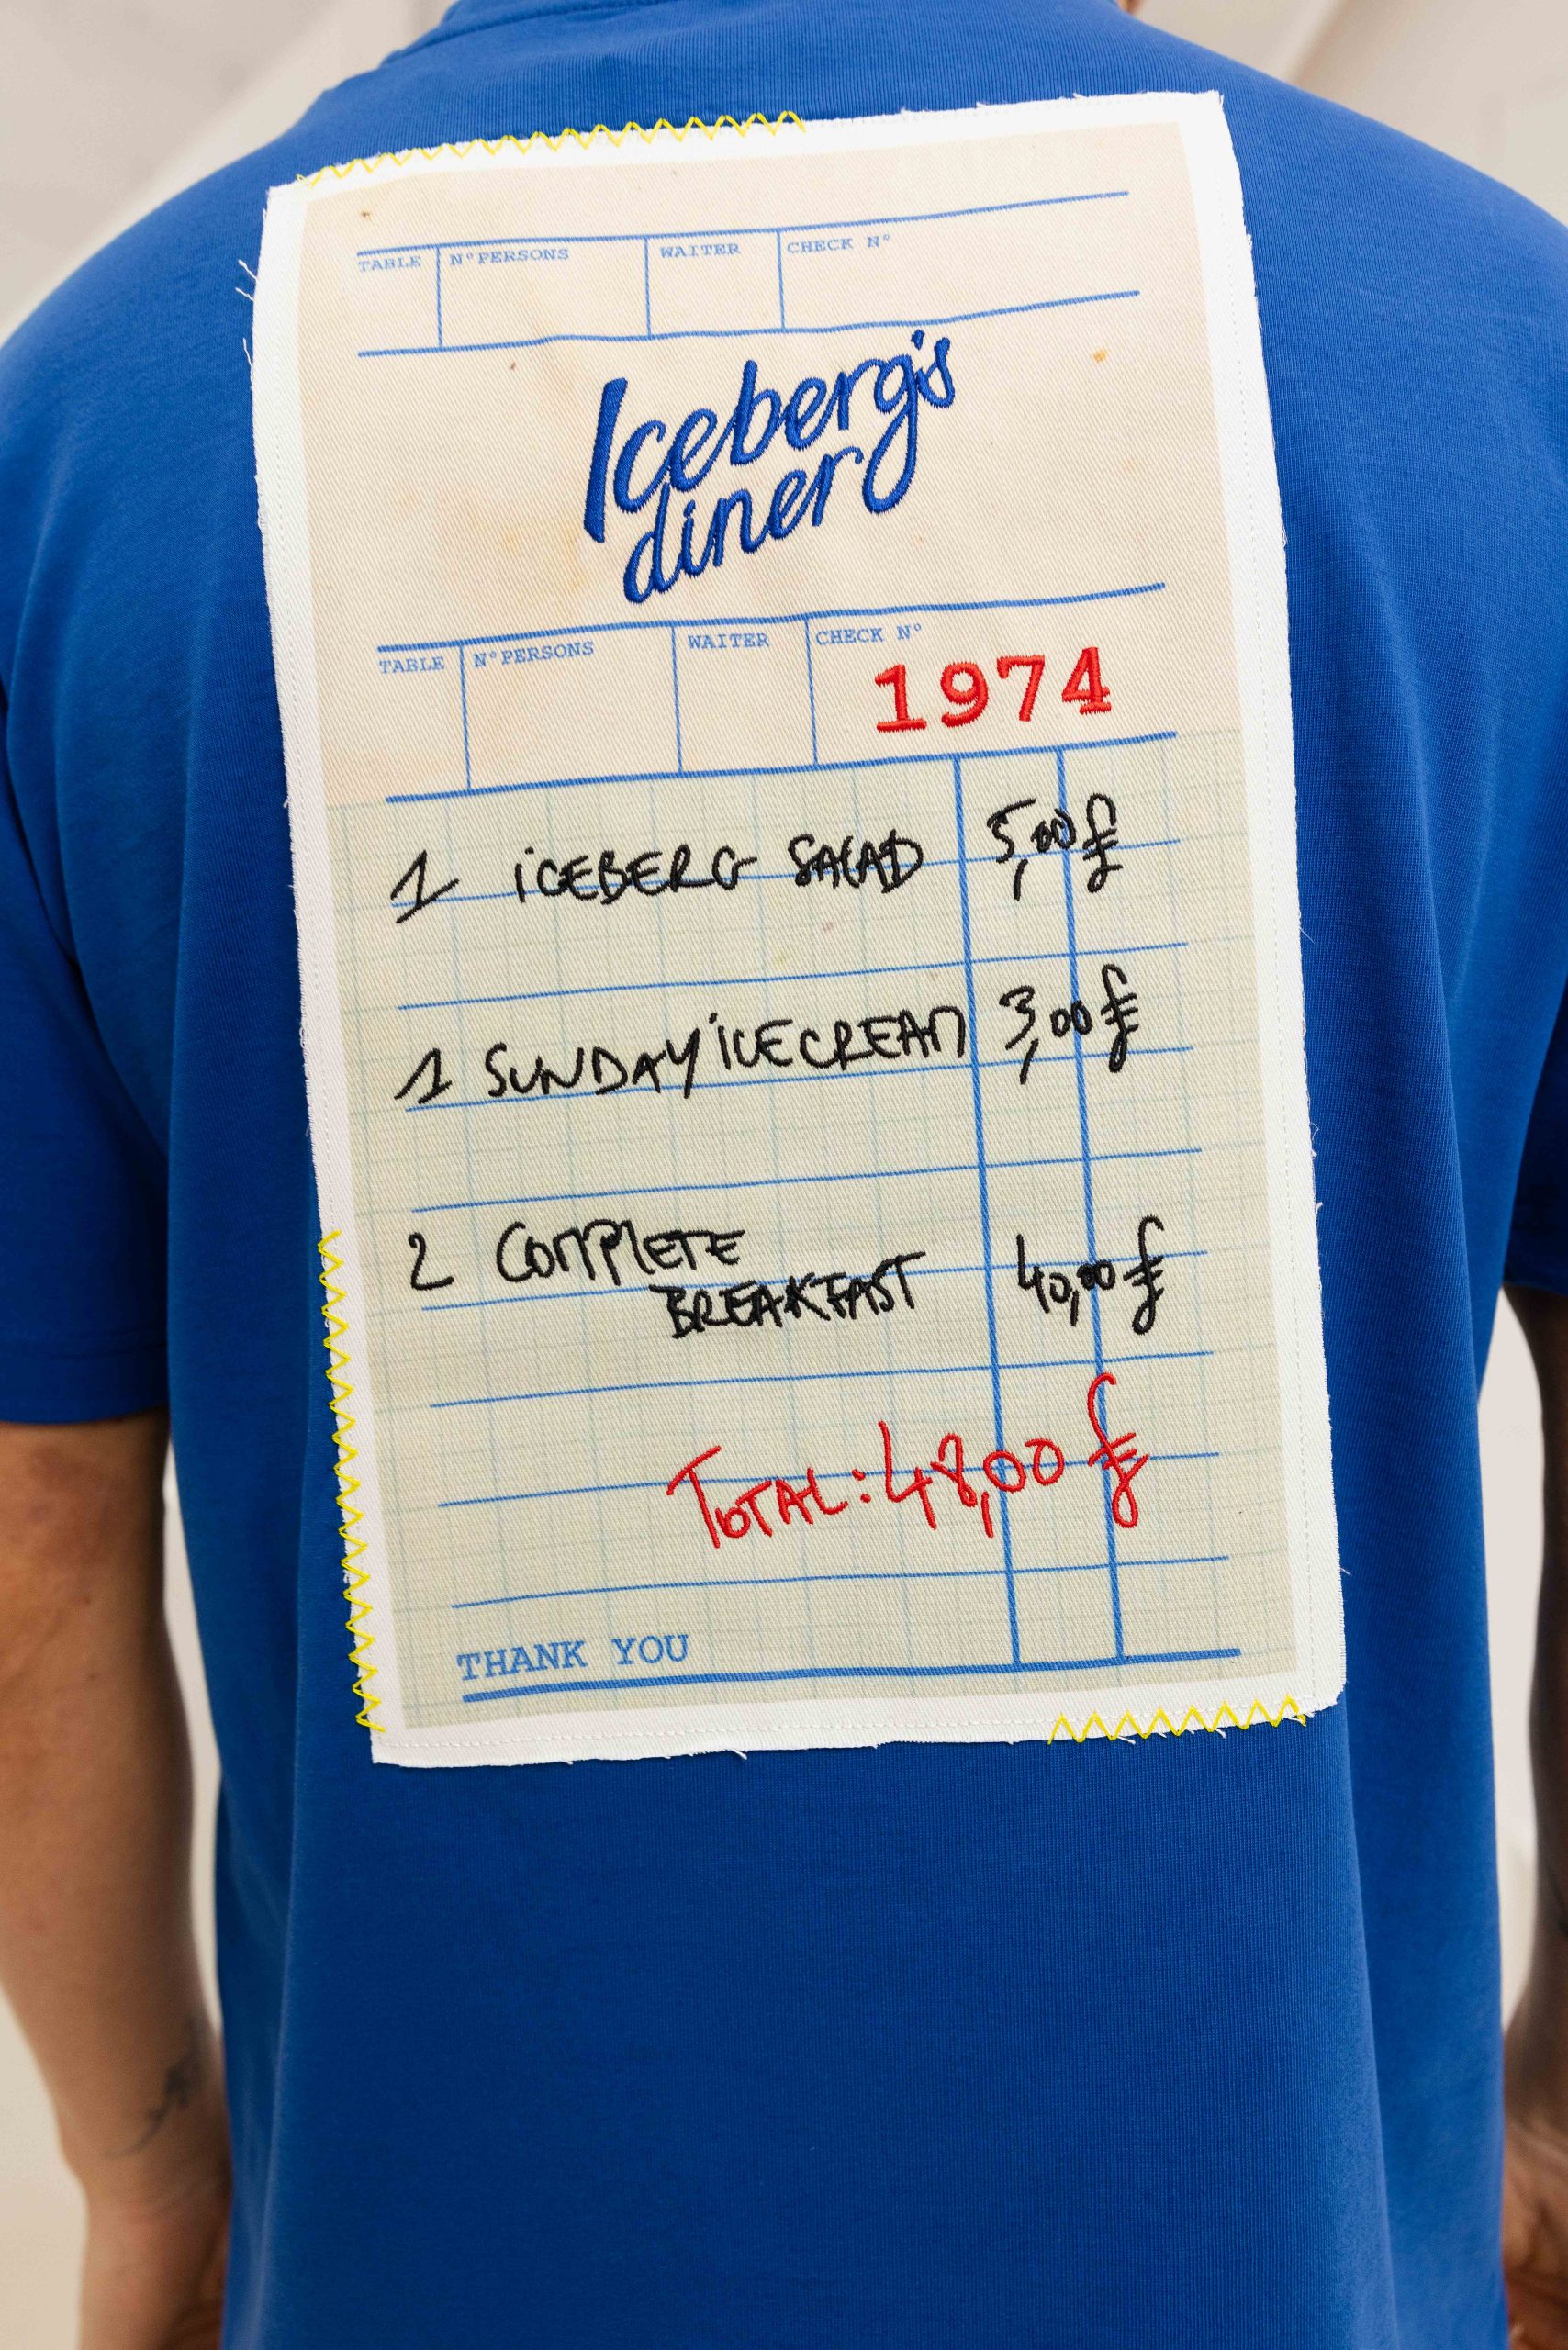 TABLE N° PERSONS WAITER CHECK N°
Iceberg's
diner
TABLE N° PERSONS WAITER CHECK N°
1974
1 iCEBERG SALAD 5,00 ₤
1 SUNDAY iCECREAM 3,00 ₤
2 COMPLETE
BREAKFAST 40,00 ₤
TOTAL: 48,00 ₤
THANK YOU